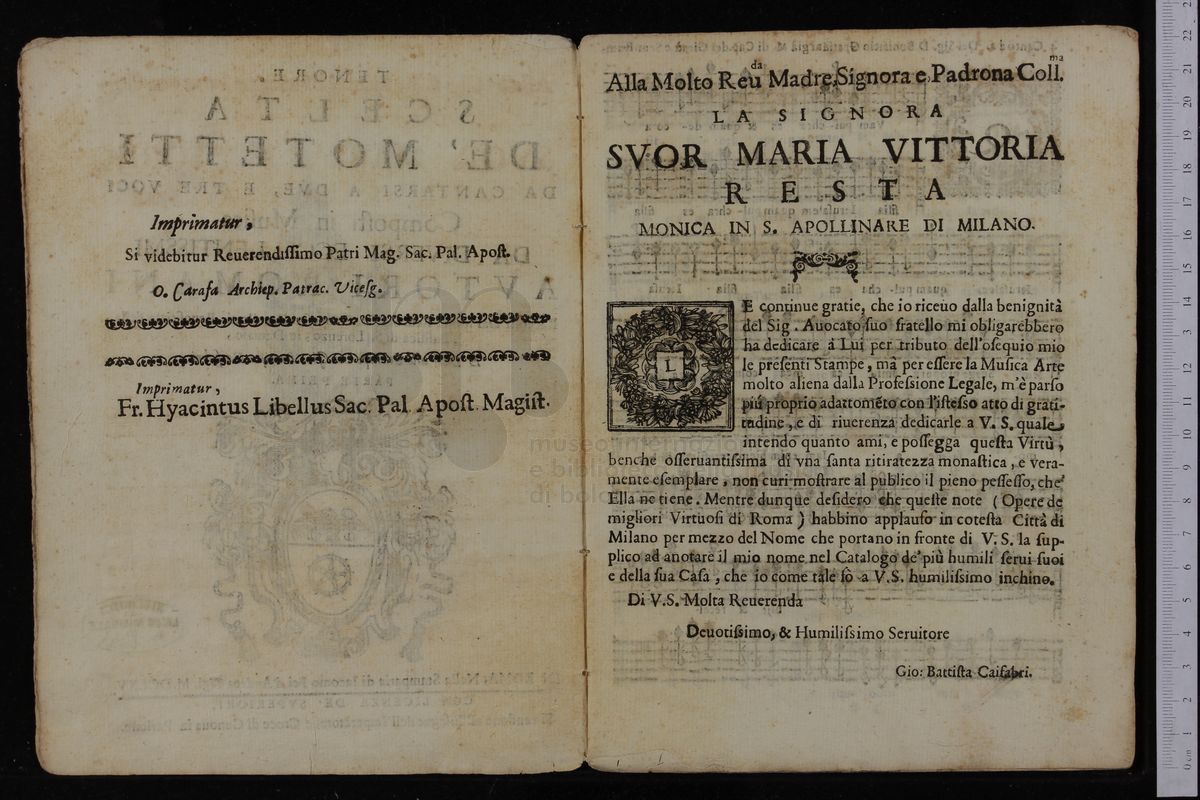 Imprimatur,
Si videbitur Reuerendissimo Patri Mag. Sac. Pal. Apost.
O. Carafa Archiep. Patrac. Vicesg.
Imprimatur,
Fr. Hyacintus Libellus Sac. Pal. Apost. Magist.
Alla Molto Reu.da Madre, Signora e, Padrona Coll.ma
LA SIGNORA
SVOR MARIA VITTORIA
RESTA
MONICA IN S. APOLLINARE DI MILANO.
LE continue gratie, che io riceuo dalla benignità
del Sig. Auocato suo fratello mi obligarebbero
ha dedicare á Lui per tributo dell'osequio mio
le presenti Stampe, mà per essere la Musica Arte
molto aliena dalla Professione Legale, m'è parso
piú proprio adattomẽto con l'istesso atto di grati-
tudine, e di riuerenza dedicarle a V. S. quale
intendo quanto ami, e possegga questa Virtù,
benche osseruantissima di vna santa ritiratezza monastica, e vera-
mente esemplare, non curi mostrare al publico il pieno pessesso, che
Ella ne tiene. Mentre dunque desidero che queste note (Opere de
migliori Virtuosi di Roma) habbino applauso in cotesta Città di
Milano per mezzo del Nome che portano in fronte di V. S. la sup-
plico ad anotare il mio nome nel Catalogo de' più humili serui suoi
e della sua Casa, che io come tale sò a V.S. humilissimo inchino.
Di V.S. Molta Reuerenda
Deuotissimo, & Humilissimo Seruitore
Gio: Battista Caifabri.